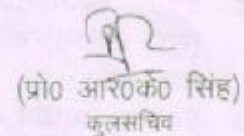 (प्रो0 आर0के0 सिंह)
कुलसचिव